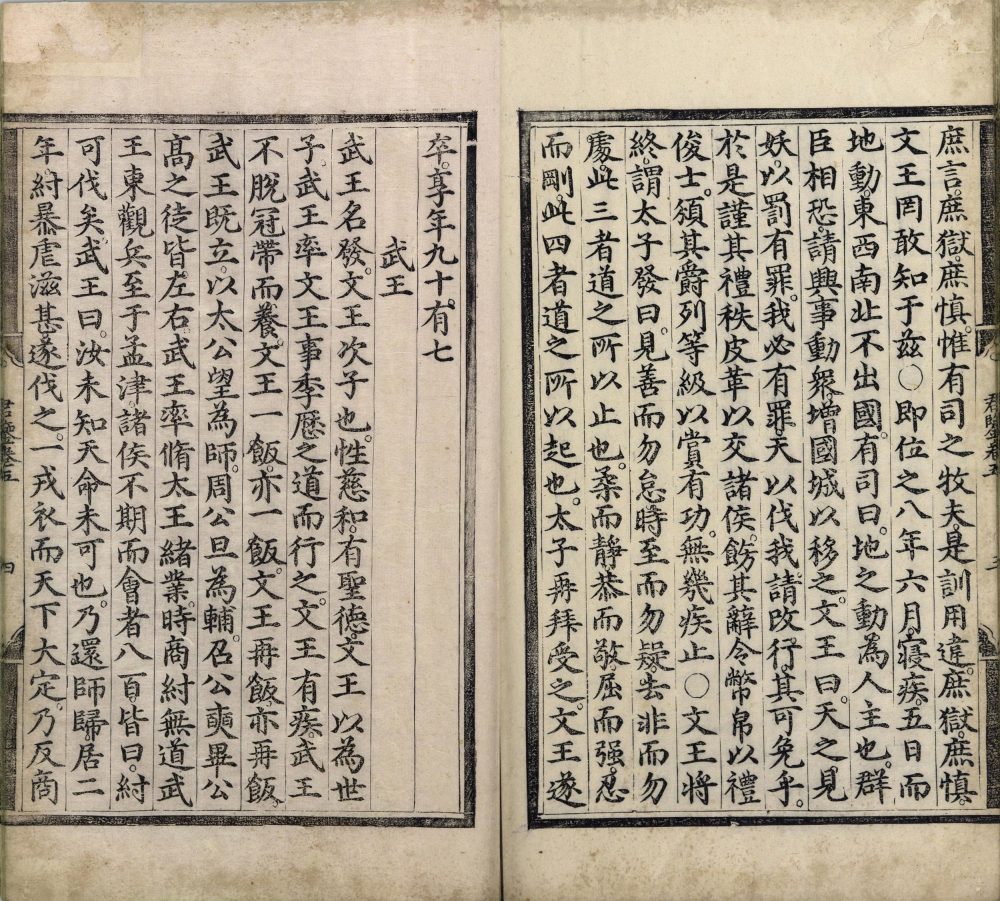 庶言。庶獄。庶慎。惟有司之牧夫。是訓用違。庶獄。庶慎。
文王罔敢知于兹〇即位之八年六月。寢疾。五日而
地動。東西南北不出國。有司曰。地之動為人主也。群
臣相恐。請興事動衆。增國城以移之。文王曰。天之見
妖。以罰有罪。我必有罪。天以伐我。請改行。其可免乎。
於是謹其禮秩皮革。以交諸侯。飭其辭令幣帛。以禮
俊士。頒其爵列等級。以賞有功。無幾疾止〇文王將
終。謂太子發曰。見善而勿怠。時至而勿疑。去非而勿
處。此三者道之所以止也。柔而靜。恭而敬。屈而强。忍
而剛。此四者道之所以起也。太子再拜受之。文王遂
卒。享年九十有七
武王
武王名發。文王次子也。性慈和。有聖德。文王以為世
子。武王率文王事季歷之道而行之。文王有疾。武王
不脫冠帶而養。文王一飯。亦一飯。文王再飯。亦再飯。
武王既立。以太公望為師。周公旦為輔。召公奭畢公
高之徒皆左右。武王率脩太王緒業。時商紂無道。武
王東觀兵至于孟津。諸侯不期而會者八百。皆曰。紂
可伐矣。武王曰。汝未知天命。未可也。乃還師歸。居二
年。紂暴虐滋甚。遂伐之。一戎衣而天下大定。乃反商
君鑒卷五
四
君鑒卷五
三